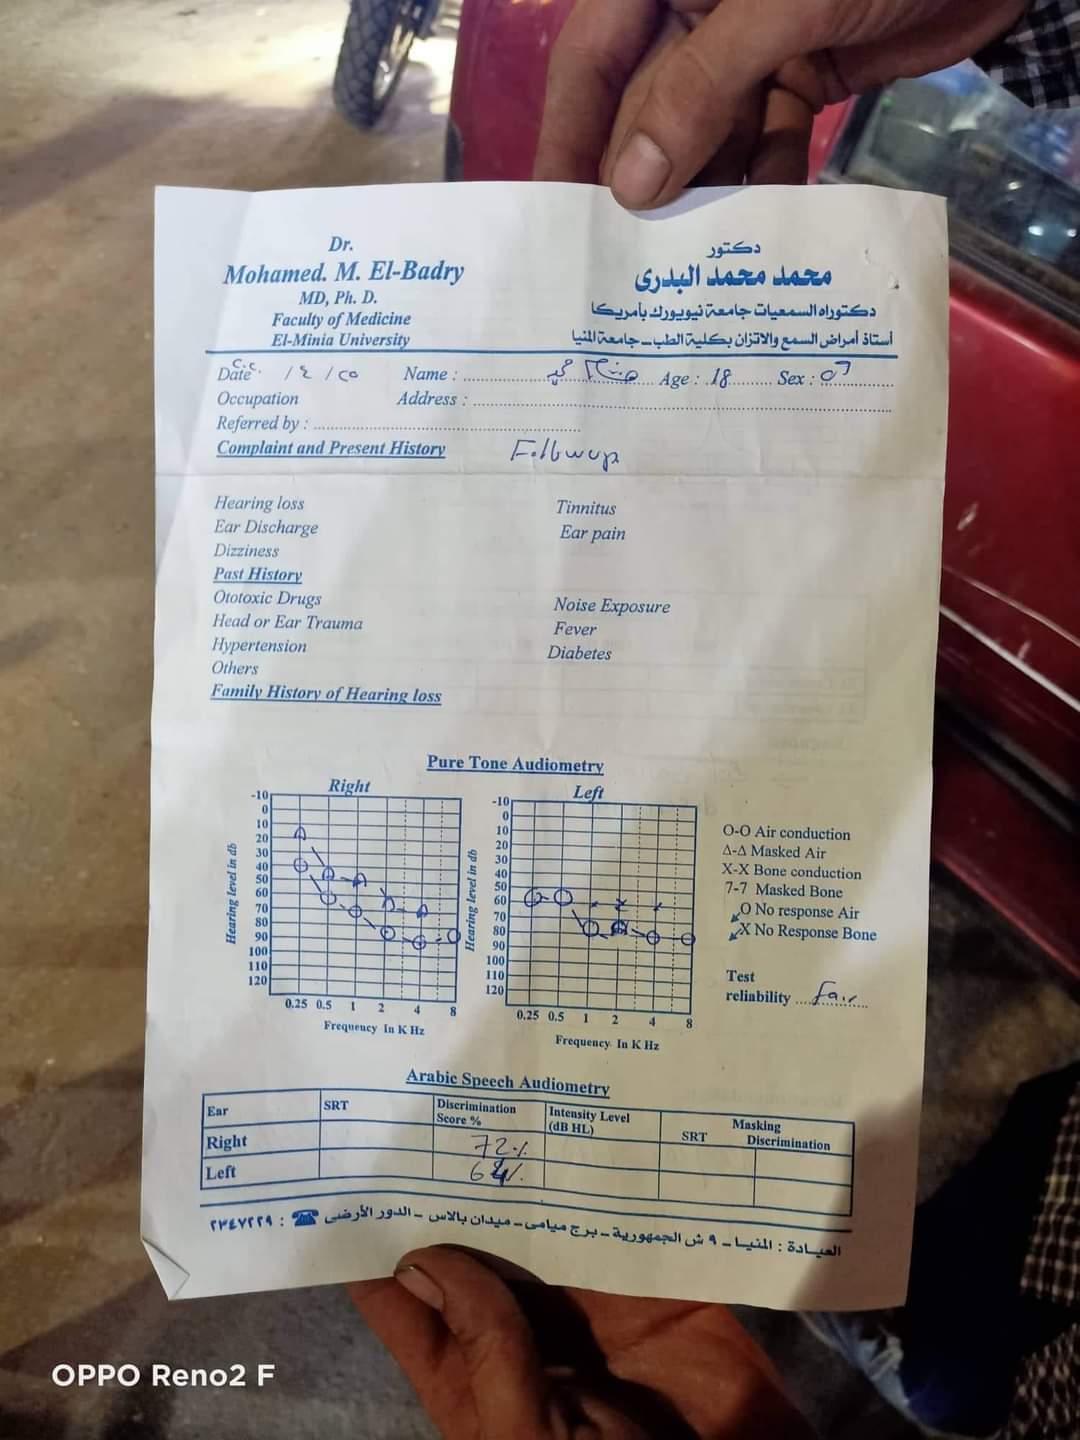 Dr.
Mohamed. M. El-Badry
MD, Ph. D.
Faculty of Medicine
El-Minia University
دكتور
محمد محمد البدرى
دكتوراه السمعيات جامعة نيويورك بأمريكا
أستاذ أمراض السمع والاتزان بكلية الطب - جامعة المنيا
Date Name : Age : 18 Sex : ♂
Occupation Address :
Referred by :
Complaint and Present History Followup
Hearing loss Tinnitus
Ear Discharge Ear pain
Dizziness
Past History
Ototoxic Drugs Noise Exposure
Head or Ear Trauma Fever
Hypertension Diabetes
Others
Family History of Hearing loss
Pure Tone Audiometry
Right
Hearing level in db
-10
0
10
20
30
40
50
60
70
80
90
100
110
120
0.25 0.5 1 2 4 8
Frequency In K Hz
Left
Hearing level in db
-10
0
10
20
30
40
50
60
70
80
90
100
110
120
0.25 0.5 1 2 4 8
Frequency In K Hz
O-O Air conduction
Δ-Δ Masked Air
X-X Bone conduction
7-7 Masked Bone
O No response Air
X No Response Bone
Test
reliability fair
Arabic Speech Audiometry
Ear SRT Discrimination Score % Intensity Level (dB HL) Masking
SRT Discrimination
Right 72%
Left
العيادة : المنيا - ٩ ش الجمهورية - برج ميامى - ميدان بالاس - الدور الأرضى ☎ : ٢٣٤٧٢٢٩
OPPO Reno2 F